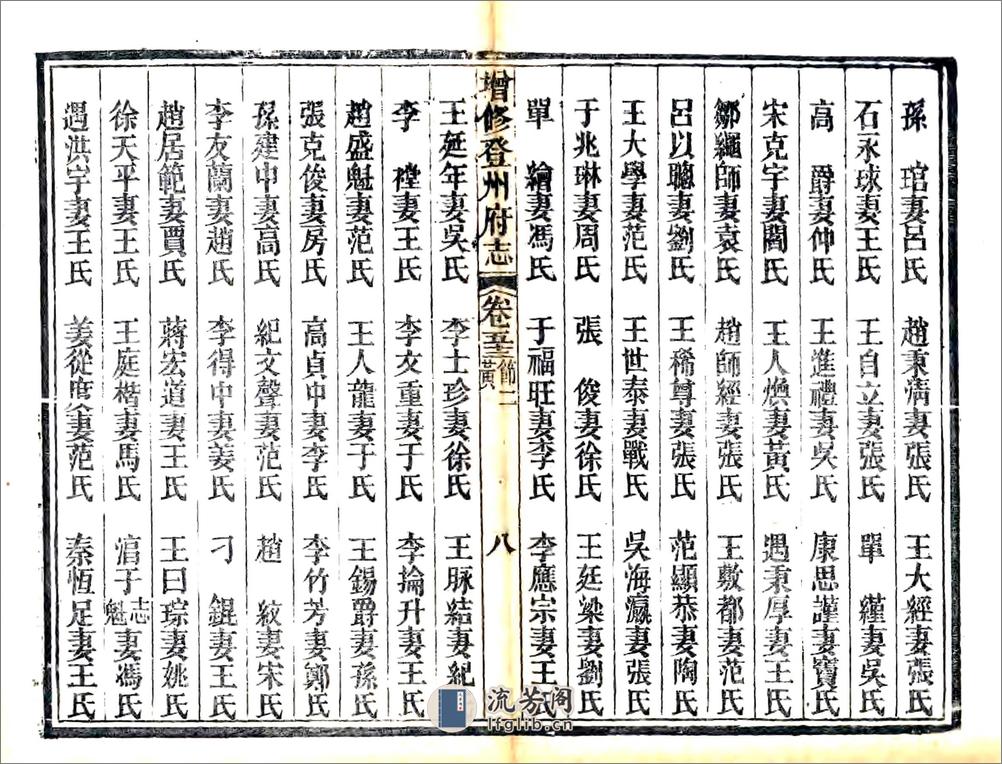 孫 琯妻呂氏 趙秉淸妻張氏 王大經妻張氏
石永球妻王氏 王自立妻張氏 單 繣妻吳氏
高 爵妻仲氏 王進禮妻吳氏 康思謹妻寶氏
宋克宇妻閻氏 王人燠妻黃氏 遇秉厚妻王氏
鄒繩師妻袁氏 趙師經妻張氏 王敷都妻范氏
呂以聰妻劉氏 王稀尊妻張氏 范顯恭妻陶氏
王大學妻范氏 王世泰妻戰氏 吳海瀛妻張氏
于兆琳妻周氏 張 俊妻徐氏 王延梁妻劉氏
單 繪妻馮氏 于福旺妻李氏 李應宗妻王氏
增修登州府志 卷五十三 節二 黃 八
王延年妻吳氏 李士珍妻徐氏 王脉結妻紀氏
李 妻王氏 李友重妻于氏 李掄升妻王氏
趙盛魁妻范氏 王人龍妻于氏 王錫爵妻孫氏
張克俊妻房氏 高貞中妻李氏 李竹芳妻鄭氏
孫建中妻高氏 紀文聲妻范氏 趙 紋妻宋氏
李友蘭妻趙氏 李得中妻姜氏 刁 錕妻王氏
趙居範妻賈氏 蔣宏道妻王氏 王曰琮妻姚氏
徐天平妻王氏 王庭楷妻馬氏 淳于志魁妻馮氏
遇洪宇妻王氏 姜從庶妻范氏 秦恆足妻王氏
流芳閣
lfglib.cn